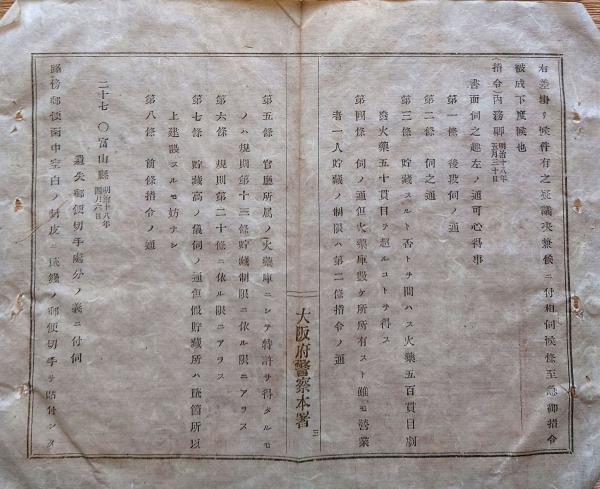 右差掛リ候件有之疑議決兼候ニ付相伺候條至急御指令
被成下度候也
(指令)内務卿 明治十八年五月三十日
書面伺之趣左ノ通可心得事
第一條 後段伺ノ通
第二條 伺之通
第三條 貯藏スルト否トヲ問ハス火藥五百貫目劇
發火藥五十貫目ヲ超ルコトヲ得ス
第四條 伺ノ通但火藥庫數ケ所所有スト雖モ營業
者一人貯藏ノ制限ハ第二條指令ノ通
大阪府警察本署 三
第五條 官廳所属ノ火藥庫ニシテ特許ヲ得タルモ
ノハ規則第十三條貯藏制限ニ依ル限ニアラス
第六條 規則第二十條ニ依ル限ニアラス
第七條 貯藏高ノ儀伺ノ通但假貯藏所ハ壹箇所以
上建設スルモ妨ナシ
第八條 前條指令ノ通
二十七 〇富山縣 明治十八年四月六日
遺失郵便切手處分ノ義ニ付伺
郵便函中宛白ノ封皮ニ ノ郵便切手ヲ貼付シタ